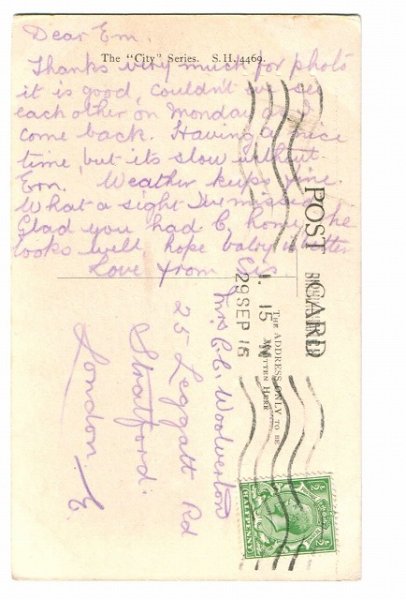 Dear Em.
The "City" Series. S.H. 4469.
Thanks very much for photo
it is good, couldn't we see
each other on Monday as I
come back. Having a nice
time, but its slow without
Ern. Weather keeps fine
What a sight I've missed
Glad you had C, home, he
looks well hope baby is better
Love from Cis
POST CARD
THE ADDRESS ONLY TO BE
WRITTEN HERE
29 SEP 16
Mrs C. C. Woolverton
25 Leggatt Rd
Stratford
London. E.
½ ½
HALFPENNY